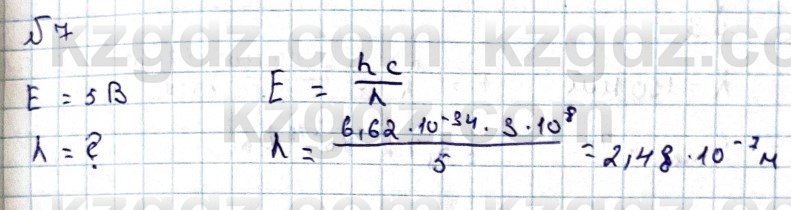 №7
E = 5 В
λ = ?
E = hc/λ
λ = 6,62 · 10⁻³⁴ · 3 · 10⁸ / 5 = 2,48 · 10⁻⁷ м
kzgdz.com